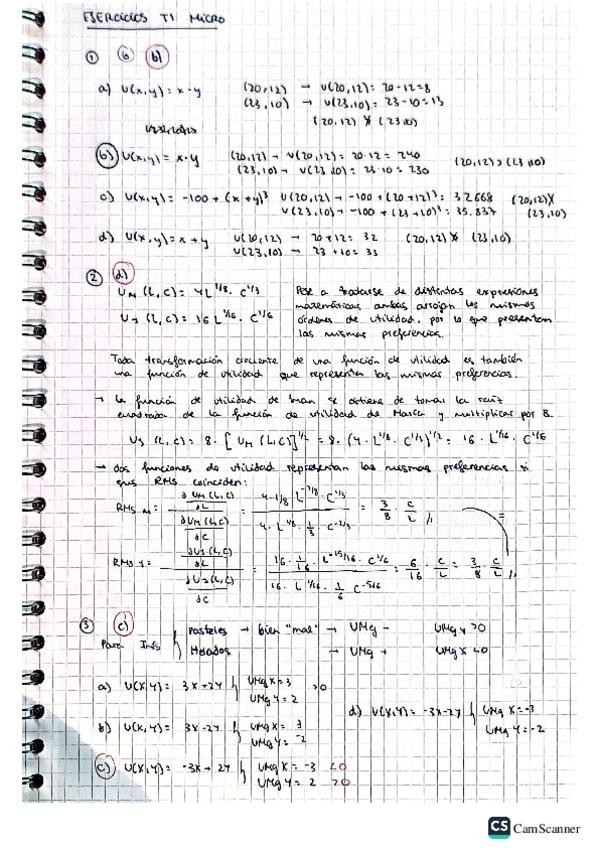 EJERCICIOS T1 MICRO
① ⑥ b)
a) U(x,y) = x-y (20,12) → U(20,12) = 20-12=8
(23,10) → U(23,10) = 23-10=13
(20,12) (23,10)
b) U(x,y) = x·y (20,12) → U(20,12) = 20·12 = 240 (20,12) > (23,10)
(23,10) → U(23,10) = 23·10 = 230
c) U(x,y) = -100 + (x+y)³ U(20,12) → -100 + (20+12)³ = 32.668 (20,12)
U(23,10) → -100 + (23+10)³ = 35.837 (23,10)
d) U(x,y) = x + y U(20,12) → 20+12 = 32 (20,12) (23,10)
U(23,10) → 23+10 = 33
② d)
U_M (L,C) = 4L^1/8 · C^1/3 Pese a tratarse de distintas expresiones
matemáticas ambas arrojan los mismos
U_J (L,C) = 16 L^1/16 · C^1/6 órdenes de utilidad, por lo que presentan
las mismas preferencias.
Toda transformación creciente de una función de utilidad es también
una función de utilidad que representa las mismas preferencias.
→ la función de utilidad de Juan se obtiene de tomar la raíz
cuadrada de la función de utilidad de María y multiplicar por 8.
U_J (L,C) = 8 · [U_M (L,C)]^1/2 = 8 · (4 · L^1/8 · C^1/3)^1/2 = 16 · L^1/16 · C^1/6
→ dos funciones de utilidad representan las mismas preferencias si
sus RMS coinciden:
RMS M = ∂U_M (L,C) / ∂L / ∂U_M (L,C) / ∂C = 4·1/8 · L^-7/8 · C^1/3 / 4 · L^1/8 · 1/3 · C^-2/3 = 3/8 · C/L
RMS J = ∂U_J (L,C) / ∂L / ∂U_J (L,C) / ∂C = 16 · 1/16 · L^-15/16 · C^1/6 / 16 · L^1/16 · 1/6 C^-5/6 = 6/16 · C/L = 3/8 · C/L
③ c)
Para Inés { Pasteles → bien "mal" → UMg - UMg Y > 0
Helados → UMg + UMg X < 0
a) U(X,Y) = 3X+2Y { UMg X = 3 >0
UMg Y = 2
d) U(X,Y) = -3X-2Y { UMg X = -3
UMg Y = -2
b) U(X,Y) = 3X-2Y { UMg X = 3
UMg Y = -2
c) U(X,Y) = -3X + 2Y { UMg X = -3 <0
UMg Y = 2 >0
CS CamScanner